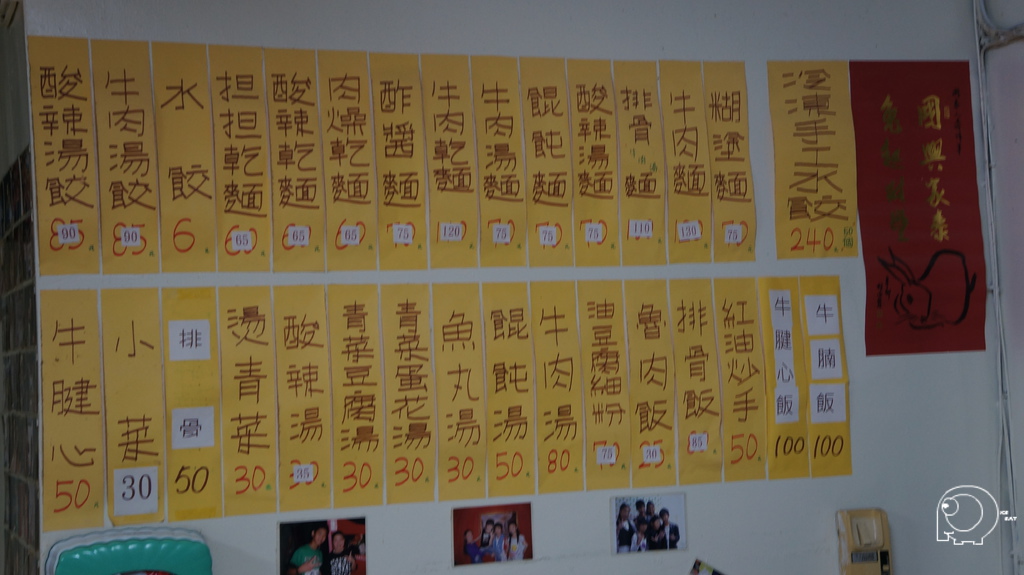 糊塗麵 75
牛肉麵 130
排骨麵 110
酸辣湯麵 75
餛飩麵 75
牛肉湯麵 75
牛肉乾麵 120
酢醬麵 75
肉燥乾麵 65
酸辣乾麵 65
担担乾麵 65
水餃 6
牛肉湯餃 90
酸辣湯餃 90
冷凍手工水餃 240
國興家泰
牛腩飯 100
牛腱心飯 100
紅油炒手 50
排骨飯 85
魯肉飯 30
油豆腐細粉 75
牛肉湯 80
餛飩湯 50
魚丸湯 30
青菜蛋花湯 30
青菜豆腐湯 30
酸辣湯 35
燙青菜 30
排骨 50
小菜 30
牛腱心 50